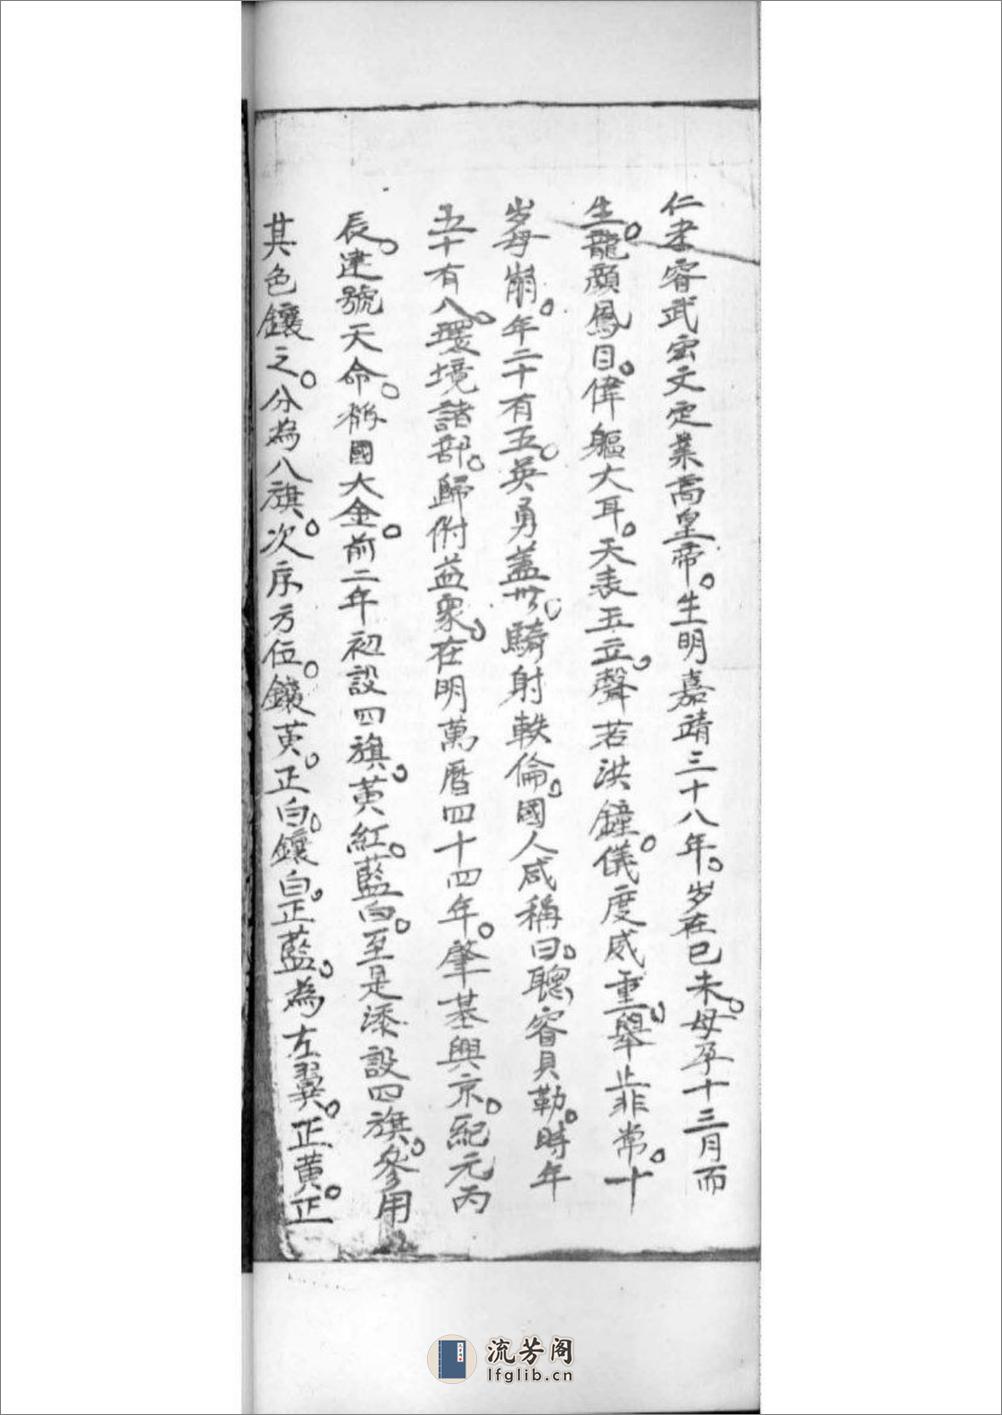 仁孝睿武弘文定業高皇帝。生明嘉靖三十八年。岁在已未。母孕十三月而
生。龍顏鳳目。偉軀大耳。天表玉立。聲若洪鐘。儀度威重。舉止非常。十
岁母崩。年二十有五。英勇蓋世。騎射軼倫。國人咸稱曰。聰睿貝勒。時年
五十有八。環境諸部。歸附益衆。在明萬曆四十四年。肇基興京。紀元丙
辰。建號天命。稱國大金。前二年初設四旗。黃紅。藍白。至是添設四旗。參用
其色鑲之。分為八旗。次序方位。鑲黃。正白。鑲白。正藍。為左翼。正黃。正
流芳阁
lfglib.cn